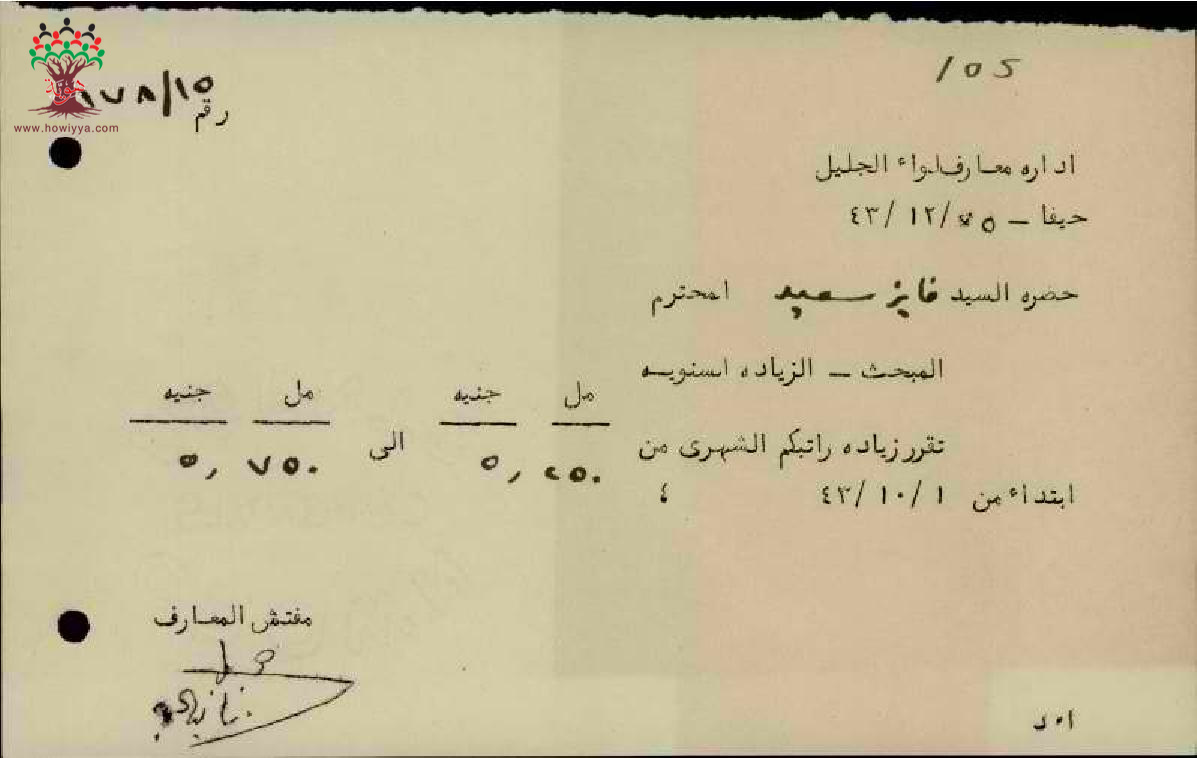 105
رقم ١٧٨/١٥
هوية
www.howiyya.com
اداره معارف لواء الجليل
حيفا – /١٢ /٤٣
حضره السيد فايز سعيد المحترم
المبحث – الزياده السنويه
مل جنيه مل جنيه
تقرر زياده راتبكم الشهرى من ٥,٢٥٠ الى ٥,٧٥٠
ابتداء من ١ /١٠ /٤٣ ؛
مفتش المعارف
ا٠د